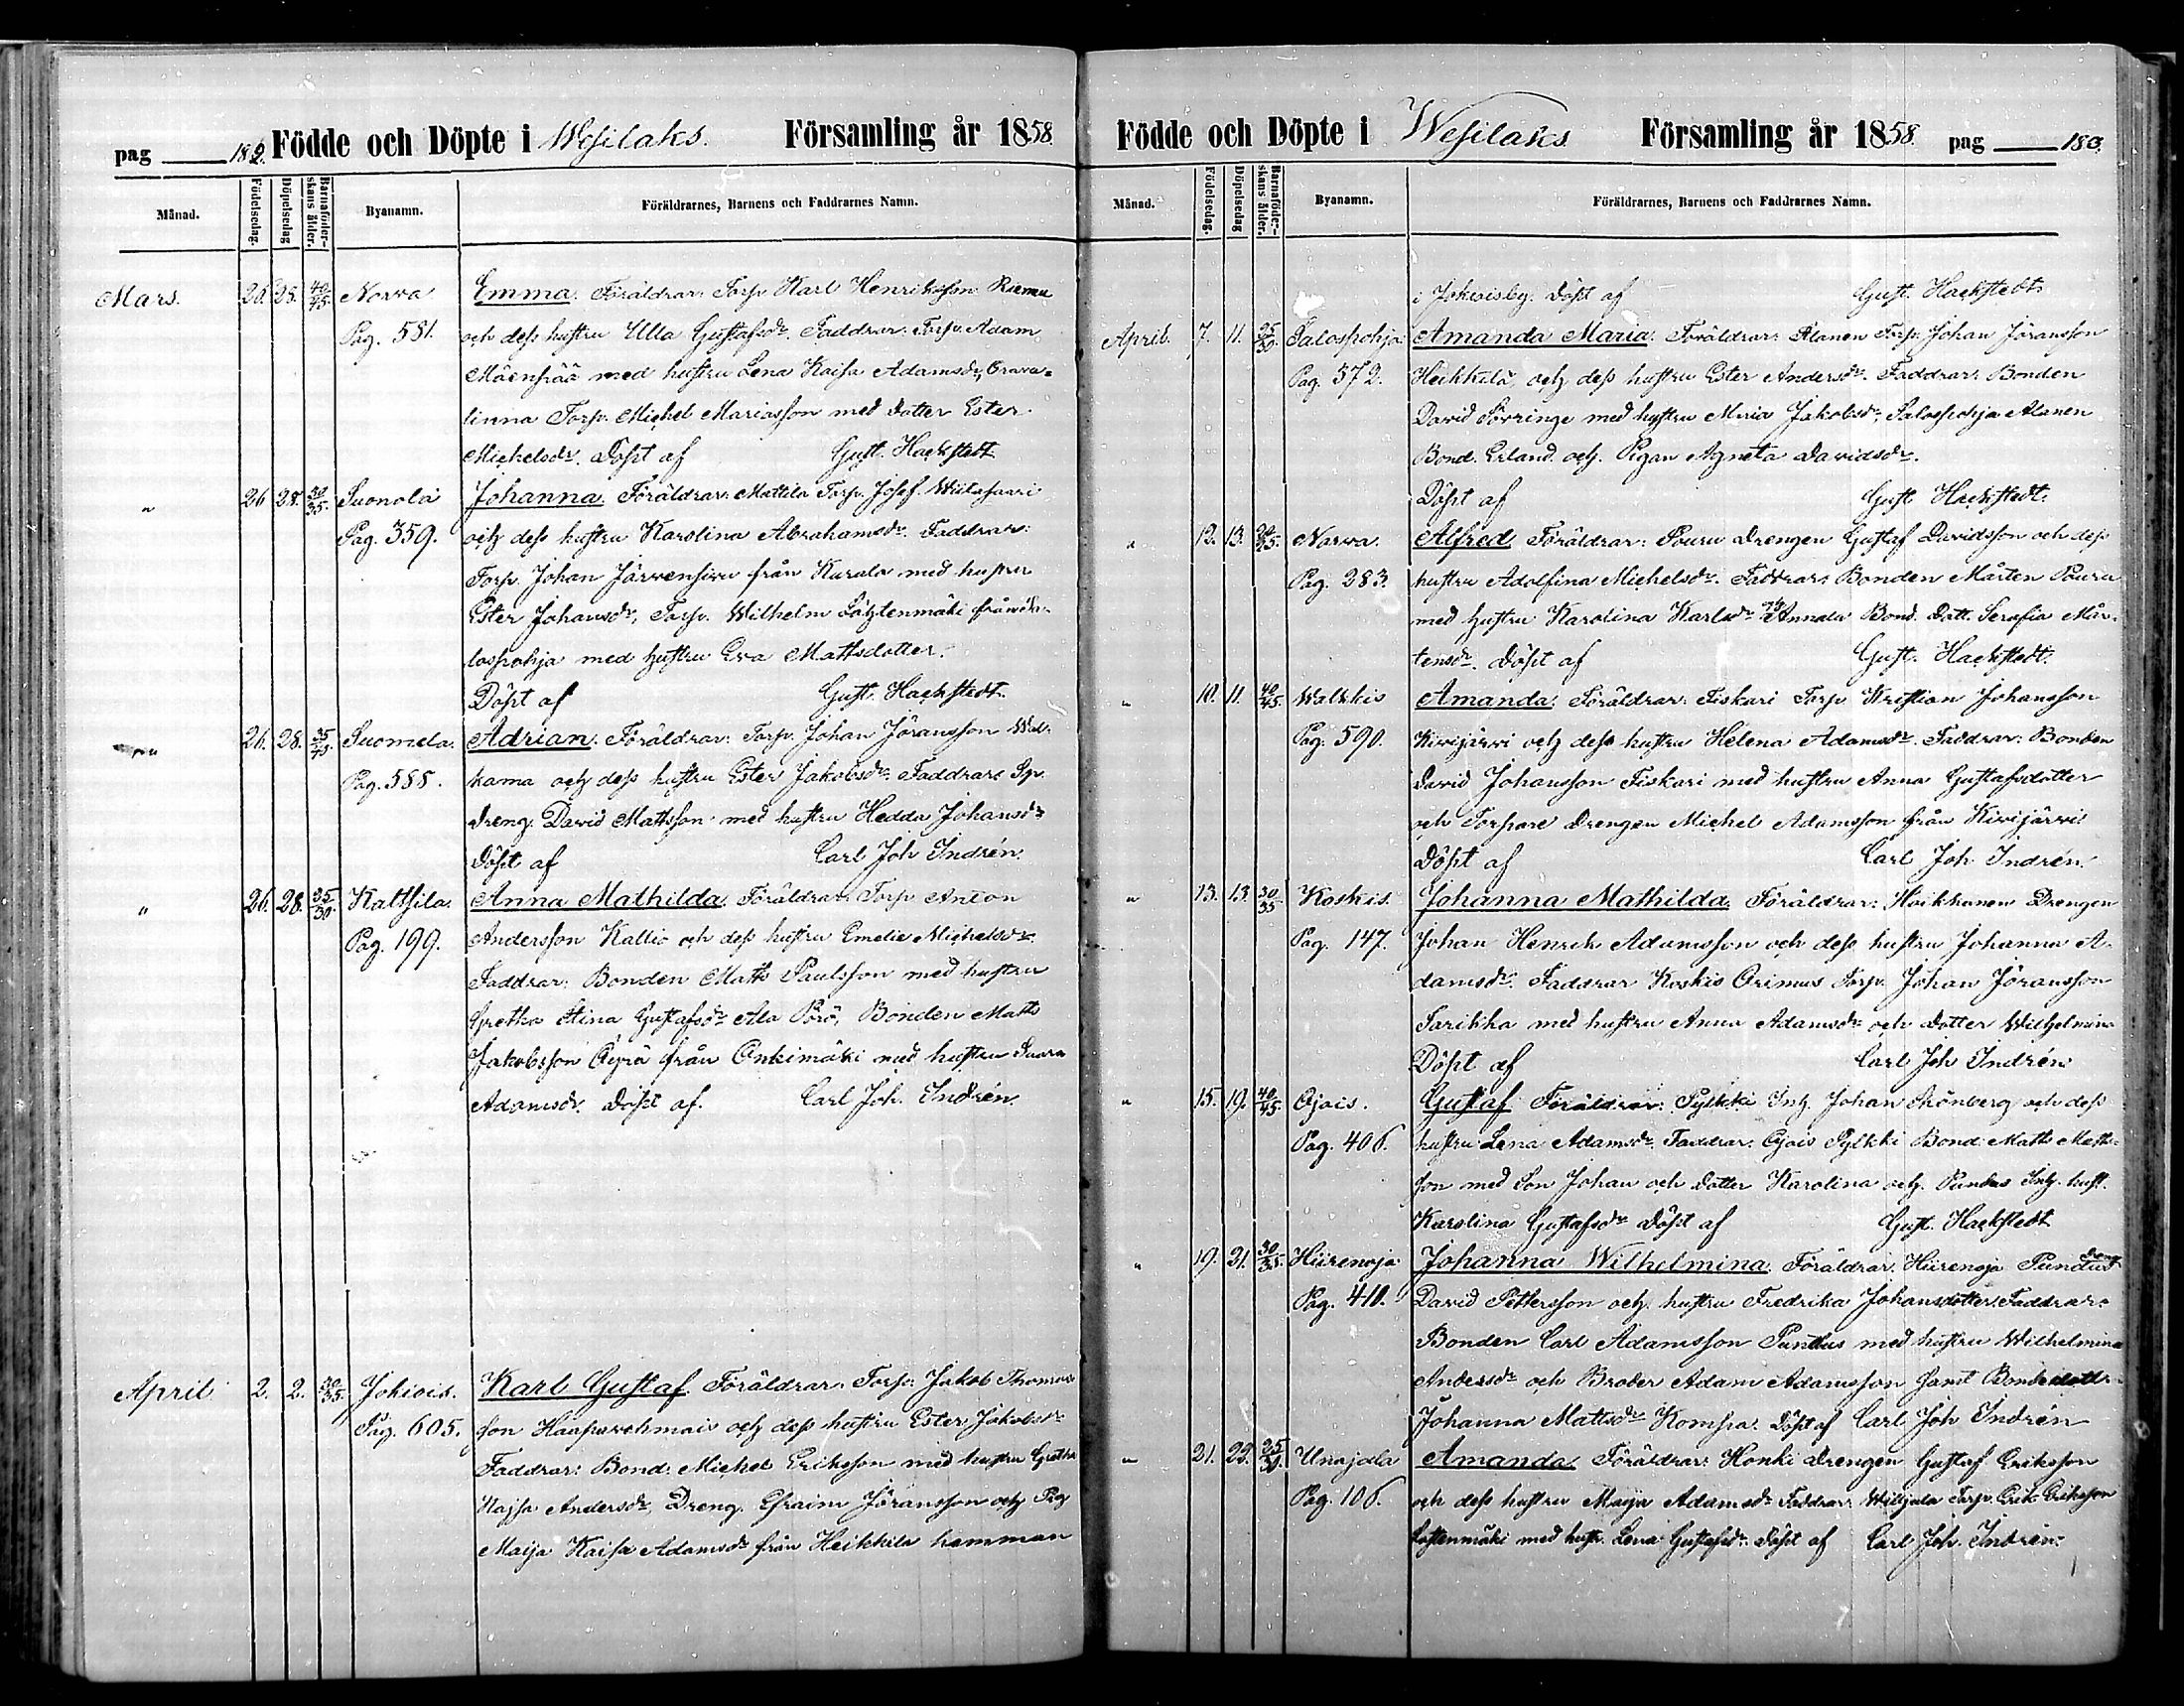 pag 182. Födde och Döpte i Wesilaks. Församling år 1858.
Månad. Födelsedag. Döpelsedag Barnaföder-skans ålder. Byanamn. Föräldrarnes, Barnens och Faddrarnes Namn.
Mars. 20. 25. 40/45. Norva Emma. Föräldrar: Torp. Karl Henriksson
Pag. 581. och dess hustru Ulla Gustafsdr. Faddrar: Torp. Adam
Mäenpää med hustru Lena Kaisa Adamsdr, Orava-
linna Torp. Michel Mariasson med dotter Ester
Michelsdr. Döpt af Gust. Hackstedt
" 26 28. 30/35. Suonola Johanna. Föräldrar: Mattila Torp. Josef
Pag. 359. och dess hustru Karolina Abrahamsdr. Faddrar:
Torp. Johan Järvensivu från Kurala med hustru
Ester Johansdr, Torp. Wilhelm Lähtenmäki från Sa-
lospohja med hustru Eva Mattsdotter.
Döpt af Gust. Hackstedt.
" 26. 28. Suomela. Adrian. Föräldrar: Torp. Johan Jöransson
Pag. 588. kama och dess hustru Ester Jakobsdr. Faddrar:
dreng. David Mattsson med hustru Hedda Johansdr
Döpt af Carl Joh Indrén.
" 26. 28. Kaltsila. Anna Mathilda. Föräldrar: Torp. Anton
Pag. 199. Andersson Kallio och dess hustru Emelie Michelsdr.
Faddrar: Bonden Matts Paulsson med hustru
Gretha Stina Gustafsdr Ala Pörö, Bonden Matts
Jakobsson Äyrä från Onkimäki med hustru Saara
Adamsdr. Döpt af. Carl Joh. Indrén.
April 2. 2. 30/35. Jokiois. Karl Gustaf. Föräldrar: Torp. Jakob Thomas-
Pag. 605. son och dess hustru Ester Jakobsdr
Faddrar: Bond. Michel Eriksson med hustru Gretha
Kajsa Andersdr, Dreng. Efraim Jöransson och Pig
Maija Kaisa Adamsdr från Heikkilä hemman
Födde och Döpte i Wesilaks Församling år 1858. pag 183.
Månad. Födelsedag. Döpelsedag Barnaföder-skans ålder. Byanamn. Föräldrarnes, Barnens och Faddrarnes Namn.
i Jokioisby. Döpt af Gust. Hackstedt.
April. 7. 11. 25/30. Salospohja Amanda Maria. Föräldrar: Alanen Torp. Johan Jöransson
Pag. 572. Heikkilä, och dess hustru Ester Andersdr. Faddrar: Bonden
David Sörringe med hustru Maria Jakobsdr, Salospohja Alanen
Bond. Erland och Pigan Agneta Davidsdr.
Döpt af Gust Hackstedt.
" 12. 13. Narva. Alfred. Föräldrar: Pouru Drengen Gustaf Davidsson och dess
Pag. 283. hustru Adolfina Michelsdr. Faddrar: Bonden Mårten Pouru
med hustru Karolina Karlsdr Annala Bond. Dott. Serafia Mår-
tensdr. Döpt af Gust. Hackstedt.
" 10. 11. 40/45. Walkkis Amanda. Föräldrar: Fiskari Torp Kristian Johansson
Pag. 590. Kivijärvi och dess hustru Helena Adamsdr. Faddrar: Bonden
David Johansson Fiskari med hustru Anna Gustafsdotter
och Torpare Drengen Michel Adamsson från Kivijärvi
Döpt af Carl Joh. Indrén.
" 13. 13. 30/35 Koskis. Johanna Mathilda. Föräldrar: Haikkanen Drengen
Pag. 147. Johan Henrik Adamsson och dess hustru Johanna A-
damsdr. Faddrar Koskis Orimus Torp. Johan Jöransson
Sarikka med hustru Anna Adamsdr och Dotter Wilhelmina
Döpt af Carl Joh Indrén
" 15. 19. 40/45. Ojois. Gustaf Föräldrar: Pylkki Inh. Johan Skönberg och dess
Pag. 406. hustru Lena Adamsdr. Faddrar: Ojois Pylkki Bond. Matts Matts-
son med Son Johan och Dotter Karolina och Pundus Inh. hust.
Karolina Gustafsdr Döpt af Gust. Hackstedt
" 19. 21. 30/35. Hiirenoja Johanna Wilhelmina. Föräldrar: Hiirenoja Pundus dreng
Pag. 410. David Pettersson och hustru Fredrika Johansdotter. Faddrar:
Bonden Carl Adamsson Pundus med hustru Wilhelmina
Andersdr och Broder Adam Adamsson samt Bondedottr.
Johanna Mattsdr Kompa. Döpt af Carl Joh Indrén
" 21. 23. 25/30. Unajala Amanda. Föräldrar: Honki Drengen Gustaf Eriksson
Pag. 106. och dess hustru Maija Adamsdr Faddrar: Torp. Erik Eriksson
med hustr. Lena Gustafsdr. Döpt af Carl Joh. Indrén.